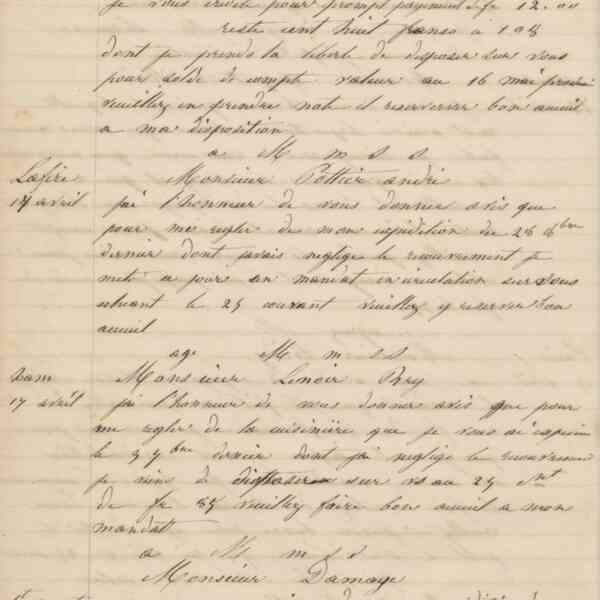 je vous évite pour prompt payement fr 12.00
reste cent huit francs à 108
dont je prends la liberté de disposer sur vous
pour solde de compte valeur au 16 mai prochain
veuillez en prendre note et reserver bon acueil
a ma disposition
a M m s s
Lafère Monsieur Pottier andré
17 avril jai l'honneur de vous donner avis que
pour me regler de mon expédition du 26 8bre
dernier dont javais negligé le recouvrement je
mets a jour un mandat en circulation sur vous
échéant le 25 courant veuillez y reserver bon
acueil
agr M m s s
ham Monsieur Lenoir Rry
17 avril jai l'honneur de vous donner avis que pour
me regler de la cuisinière que je vous ai expédié
le 7bre dernier dont jai negligé le recouvrement
je viens de disposer sur vs au 25 nt
de fr 85 veuillez faire bon acueil a mon
mandat
a M m s s
Monsieur Damaye